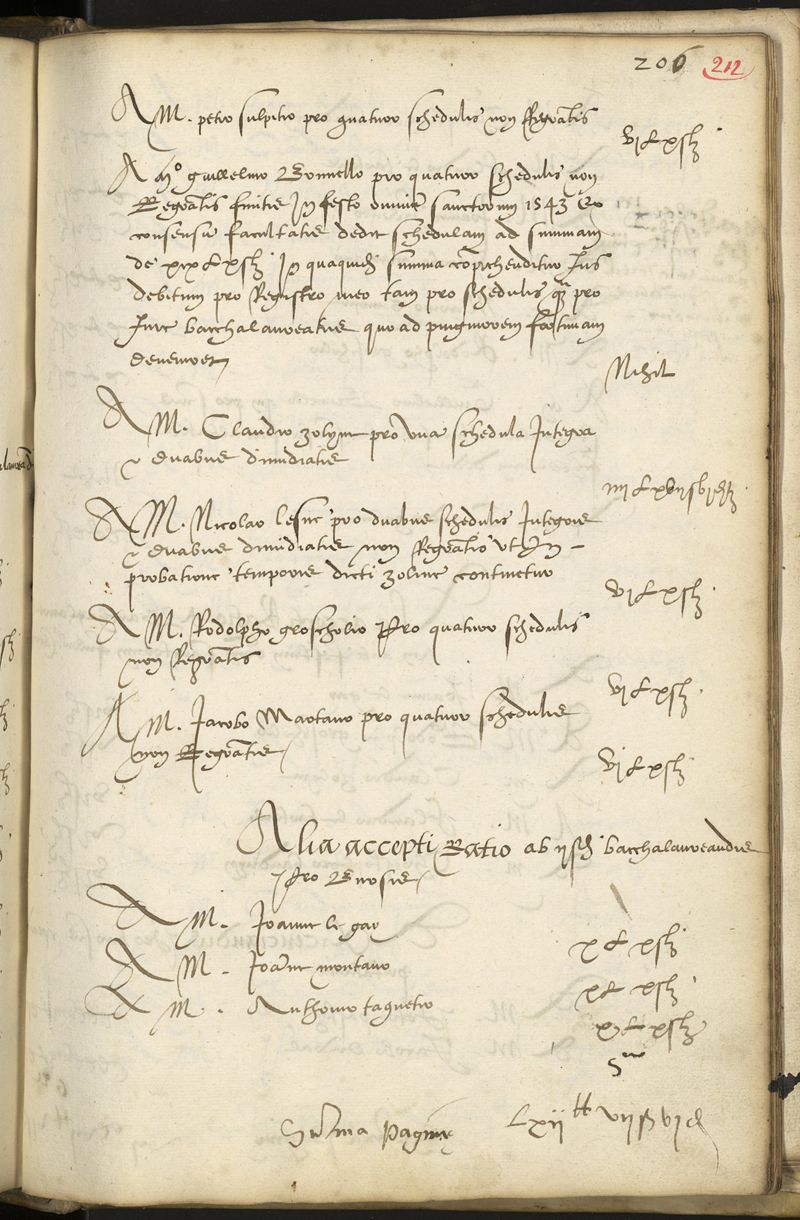 206 212
A M. petro sulpitio pro quatuor schedulis non Regratis
vj ℔ x sß
A mro guillelmo Bonnello pro quatuor schedulis non
Regratis finitis In festo omniu sanctorum 1543 Ex
consensu facultatis dedit schedulam ad summam
de xix ℔ x sß In quaquid summa coprehenditur Ius
debitum pro Registro meo tam pro schedulis q pro
Iure bacchalaureatus quo ad pinguiorem fortunam
devenerit
Nihil
A M. Claudio zolyne pro una schedula Integra
et duabus dimidiatis
A M. Nicolao lesne pro duabus schedulis Integris
et duabus dimidiatis non Regratis ut In
probatione temporis dicti zoline continetur
vj ℔ x sß
A M. Rodolpho groscholio Pro quatuor schedulis
non Regratis
vj ℔ x sß
A M. Jacobo Martano pro quatuor schedulis
non Regratis
vj ℔ x sß
Alia accepti Ratio ab bacchalaureandis
Pro Bursis
A M. Joanne le gay
x ℔ x sß
A M. Joane montano
x ℔ x sß
A M. Anthonio taquetio
x ℔ x sß
Suma Pagine lxij ℔ vij ß vj d